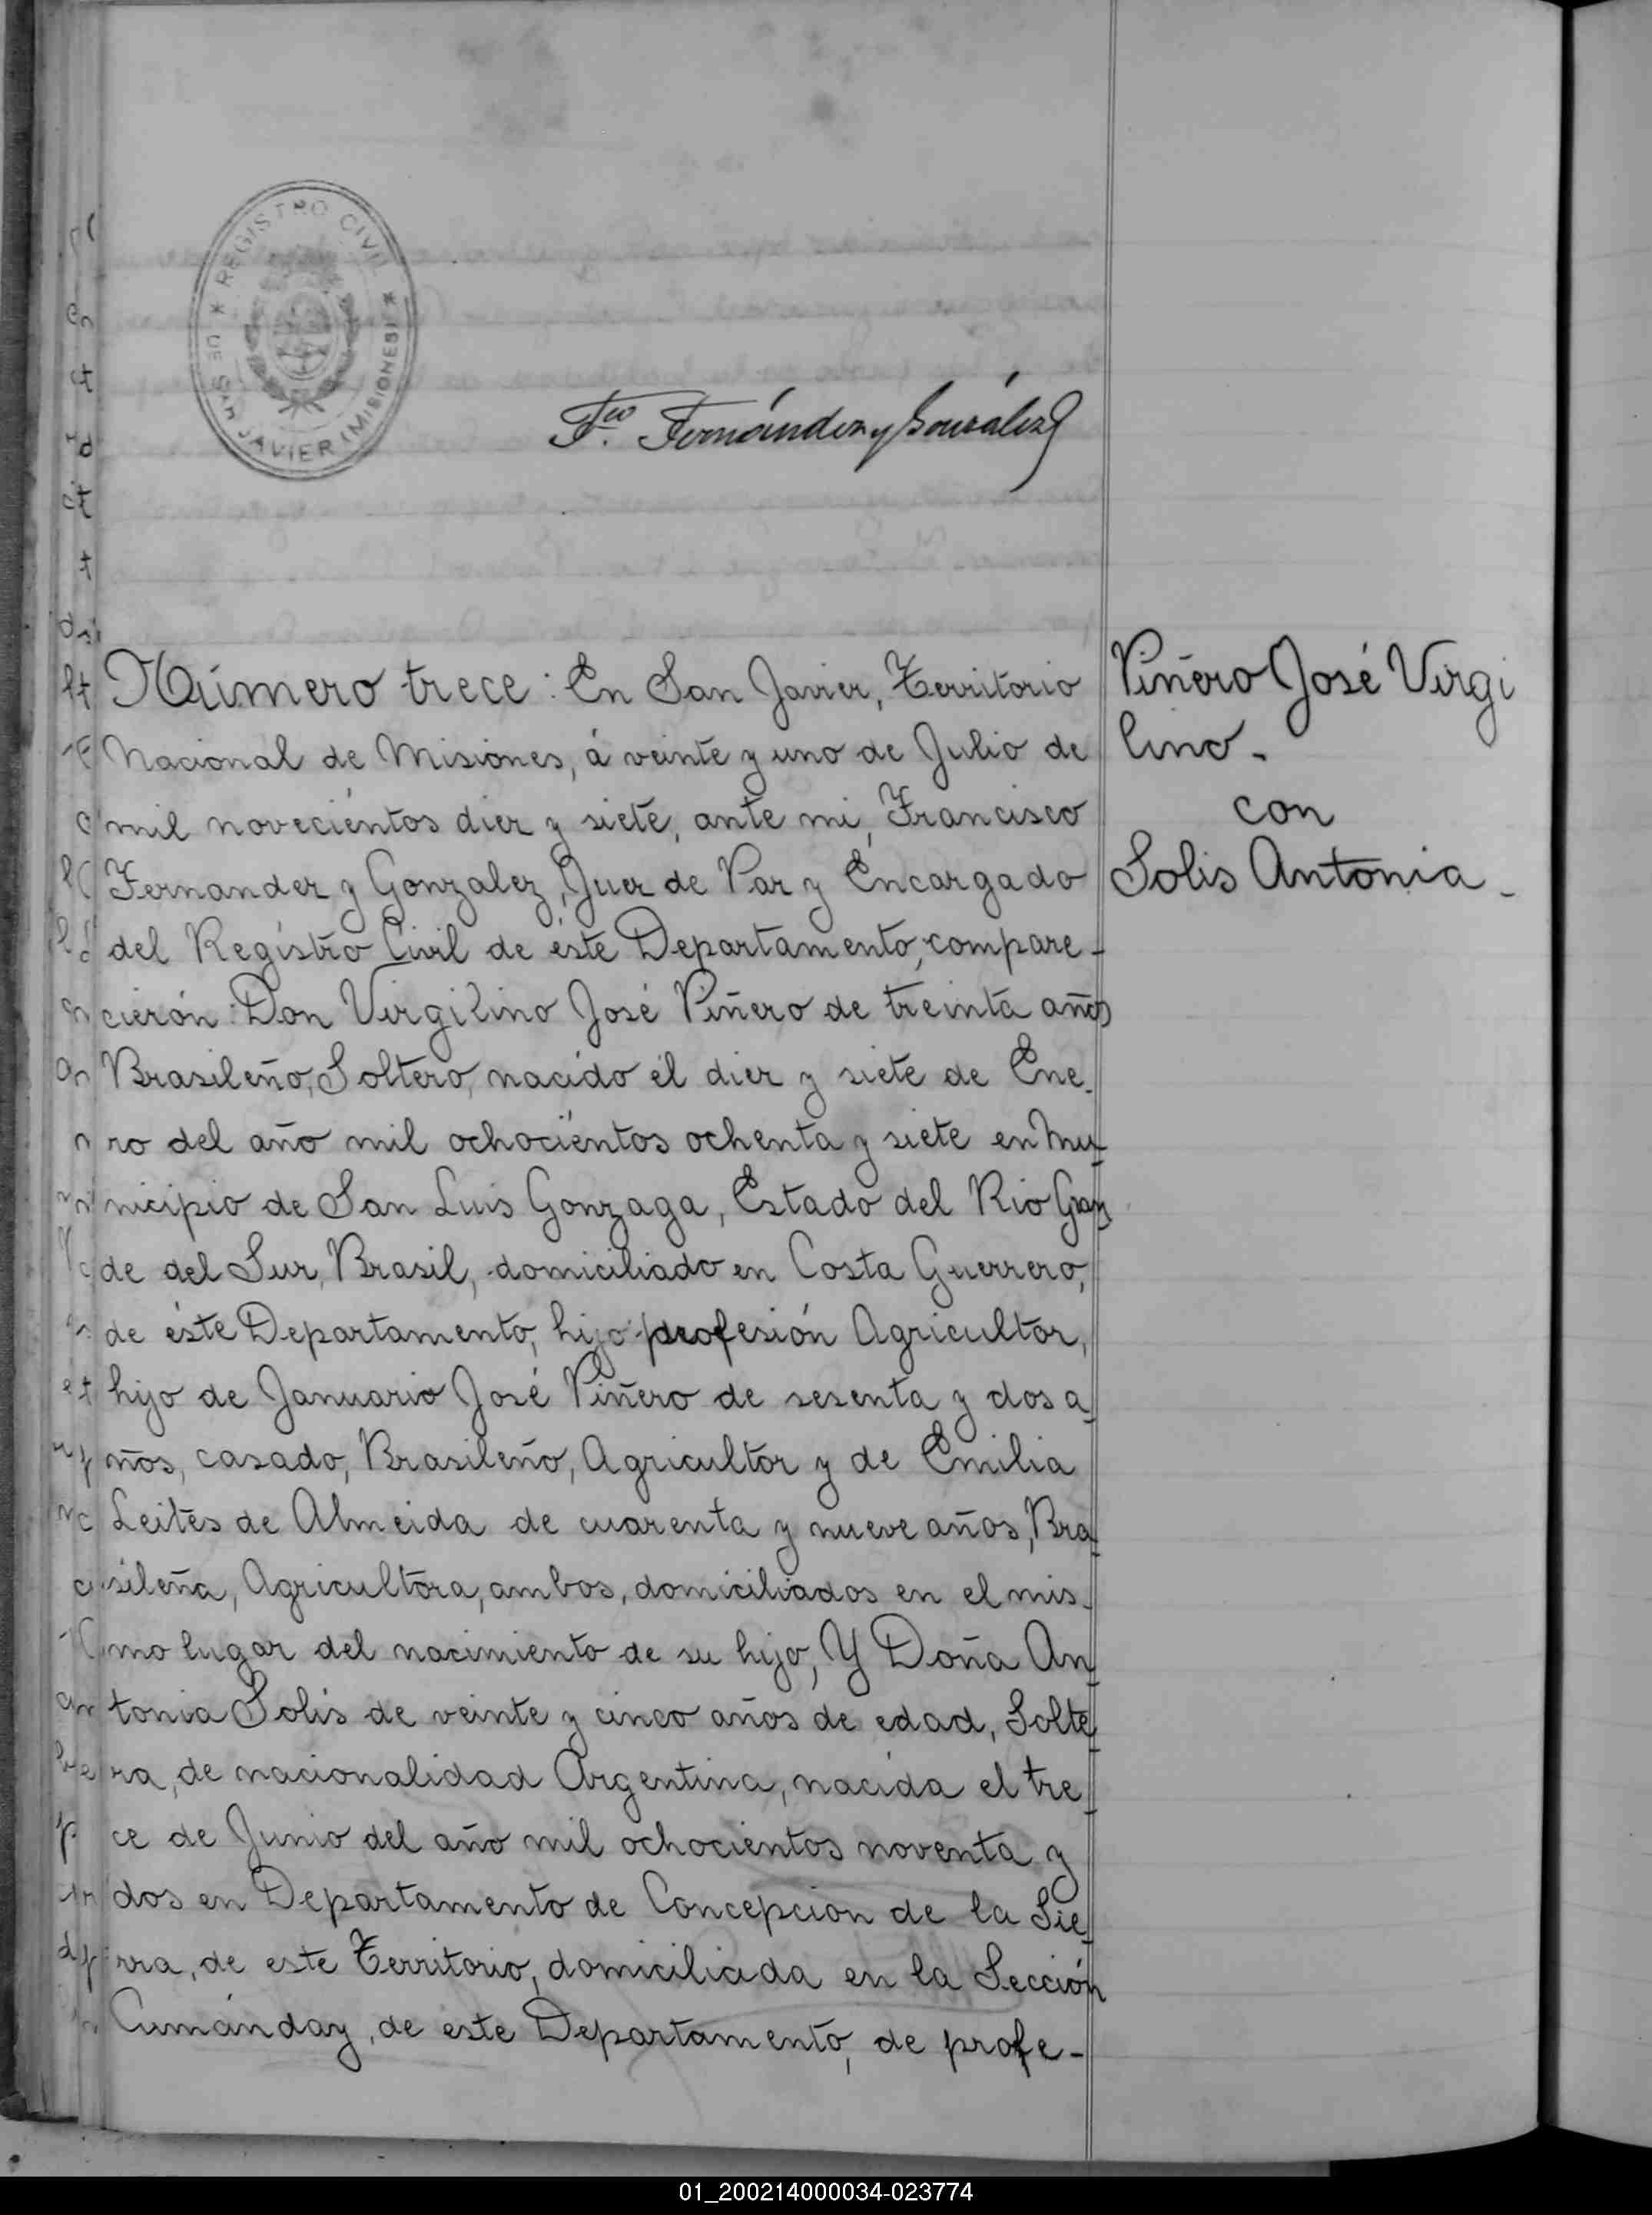 REGISTRO CIVIL
DE SAN JAVIER (MISIONES)
Fco. Fernández y González
Número trece: En San Javier, Territorio
Nacional de Misiones, á veinte y uno de Julio de
mil noveciéntos diez y siete, ante mi, Francisco
Fernandez y Gonzalez, Juez de Paz y Encargado
del Regístro Civil de éste Departamento, compare-
cierón: Don Virgilino José Piñero de treinta años
Brasileño, Soltero, nacído él diez y siete de Ene-
ro del año mil ochociéntos ochenta y siete en Mu-
nicipio de San Luis Gonzaga, Estado del Rio Gran
de del Sur, Brasil, domiciliado en Costa Guerrero,
de éste Departamento, hijo profesión Agricultor,
hijo de Januario José Piñero de sesenta y dos a-
ños, casado, Brasileño, Agricultor y de Emilia
Leites de Almeida de cuarenta y nueve años, Bra-
sileña, Agricultora, ambos, domiciliados en el mis-
mo lugar del nacimiento de su hijo, Y Doña An-
tonia Solís de veinte y cinco años de edad, Solte-
ra, de nacionalidad Argentina, nacída el tre-
ce de Junio del año mil ochocientos noventa y
dos en Departamento de Concepcion de la Sie-
rra, de este Territorio, domiciliada en la Sección
Cumánday, de este Departamento, de profe-
Piñero José Virgi
lino-
con
Solis Antonia-
01_200214000034-023774